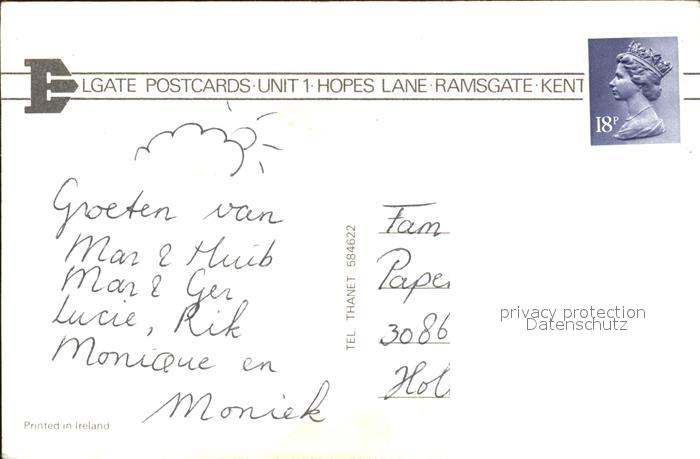 ELGATE POSTCARDS · UNIT 1 · HOPES LANE · RAMSGATE · KENT
18P
Groeten van
Mar & Huib
Mar & Ger
Lucie, Rik
Monique en
Moniek
Printed in Ireland
TEL. THANET 584622
Fam
Pape
3086
Hol
privacy protection
Datenschutz